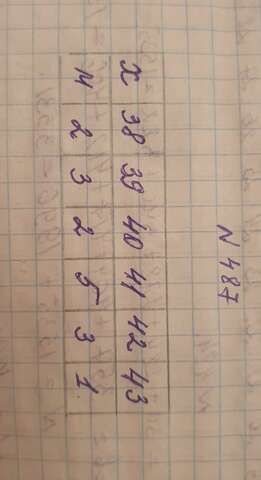 N 487
x 38 39 40 41 42 43
н 2 3 2 5 3 1